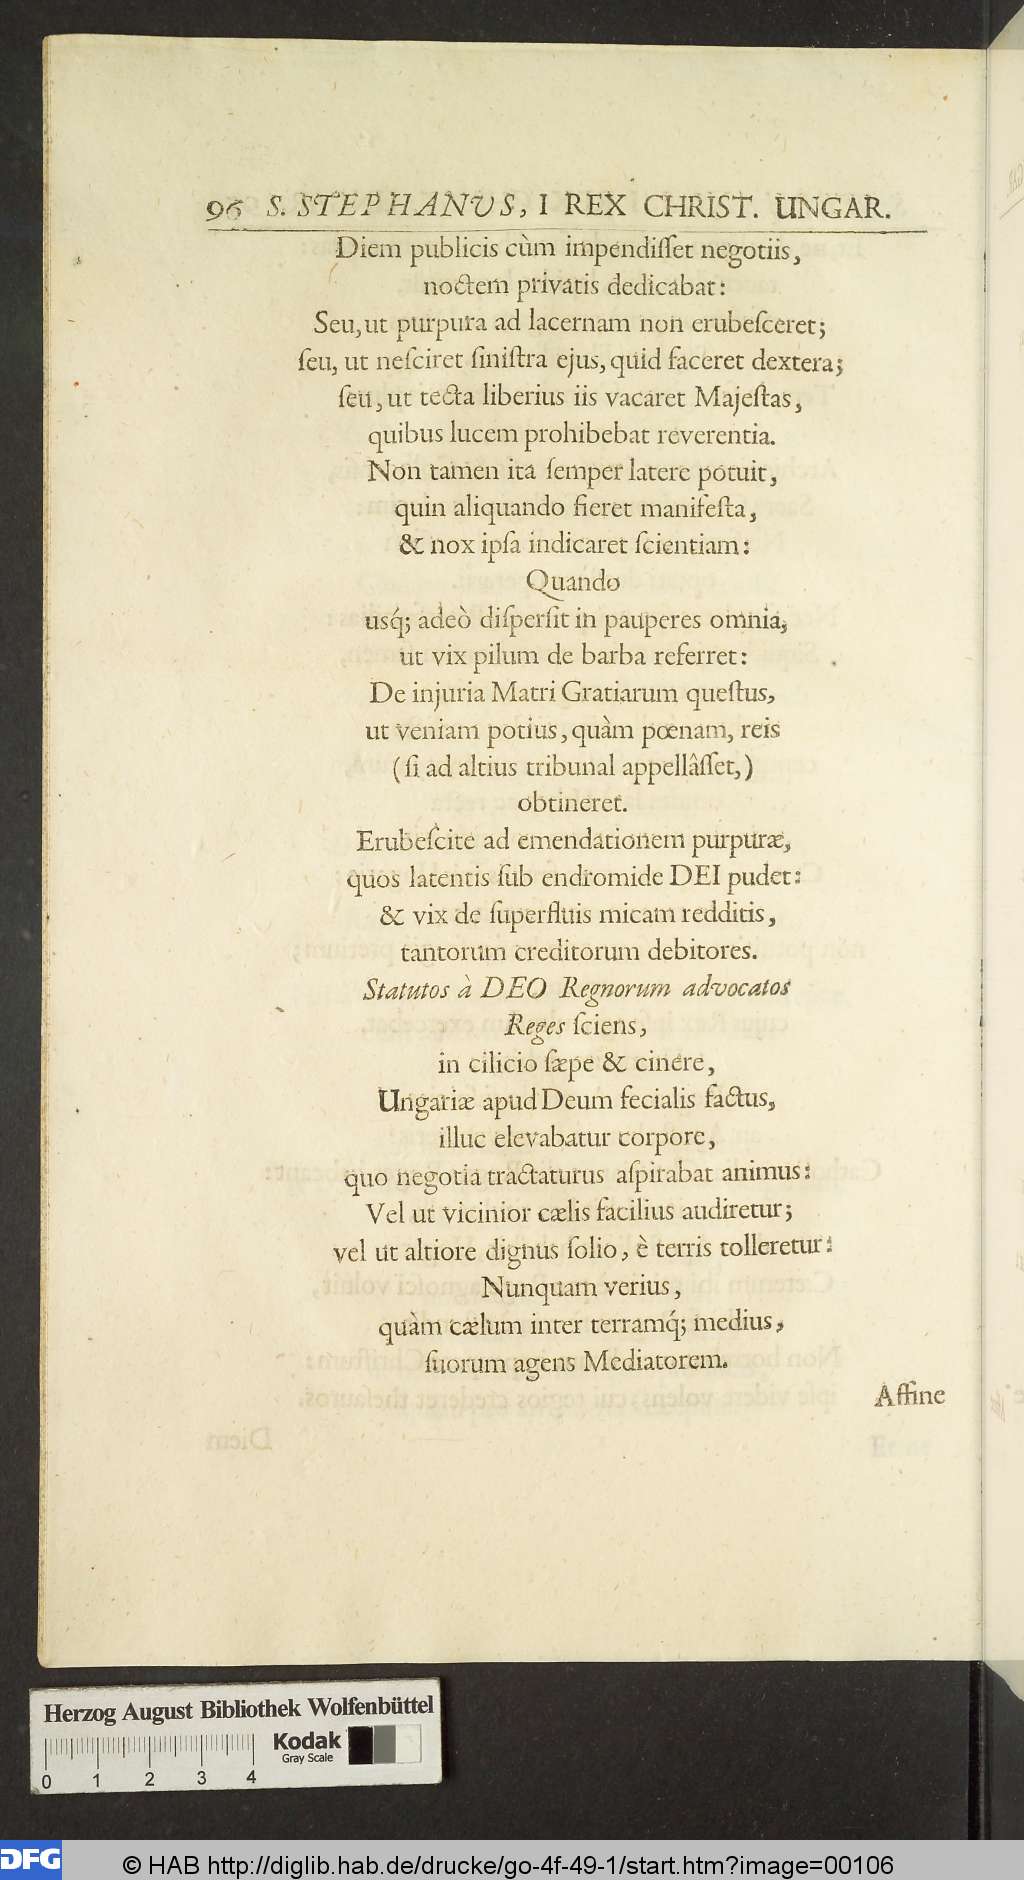 96 S. STEPHANUS, I REX CHRIST. UNGAR.
Diem publicis cùm impendiſſet negotiis,
noctem privatis dedicabat:
Seu, ut purpura ad lacernam non erubeſceret;
ſeu, ut neſciret ſiniſtra ejus, quid faceret dextera;
ſeu, ut tecta liberius iis vacaret Majeſtas,
quibus lucem prohibebat reverentia.
Non tamen ita ſemper latere potuit,
quin aliquando fieret manifeſta,
& nox ipſa indicaret ſcientiam:
Quando
uſq́; adeò diſperſit in pauperes omnia,
ut vix pilum de barba referret:
De injuria Matri Gratiarum queſtus,
ut veniam potius, quàm pœnam, reis
(ſi ad altius tribunal appellâſſet,)
obtineret.
Erubeſcite ad emendationem purpuræ,
quos latentis ſub endromide DEI pudet:
& vix de ſuperfluis micam redditis,
tantorum creditorum debitores.
Statutos à DEO Regnorum advocatos
Reges ſciens,
in cilicio ſæpe & cinere,
Ungariæ apud Deum fecialis factus,
illuc elevabatur corpore,
quo negotia tractaturus aſpirabat animus:
Vel ut vicinior cælis facilius audiretur;
vel ut altiore dignus ſolio, è terris tolleretur:
Nunquam verius,
quàm cælum inter terramq́; medius,
ſuorum agens Mediatorem.
Affine
Herzog August Bibliothek Wolfenbüttel
Kodak
Gray Scale
0 1 2 3 4
DFG
© HAB http://diglib.hab.de/drucke/go-4f-49-1/start.htm?image=00106